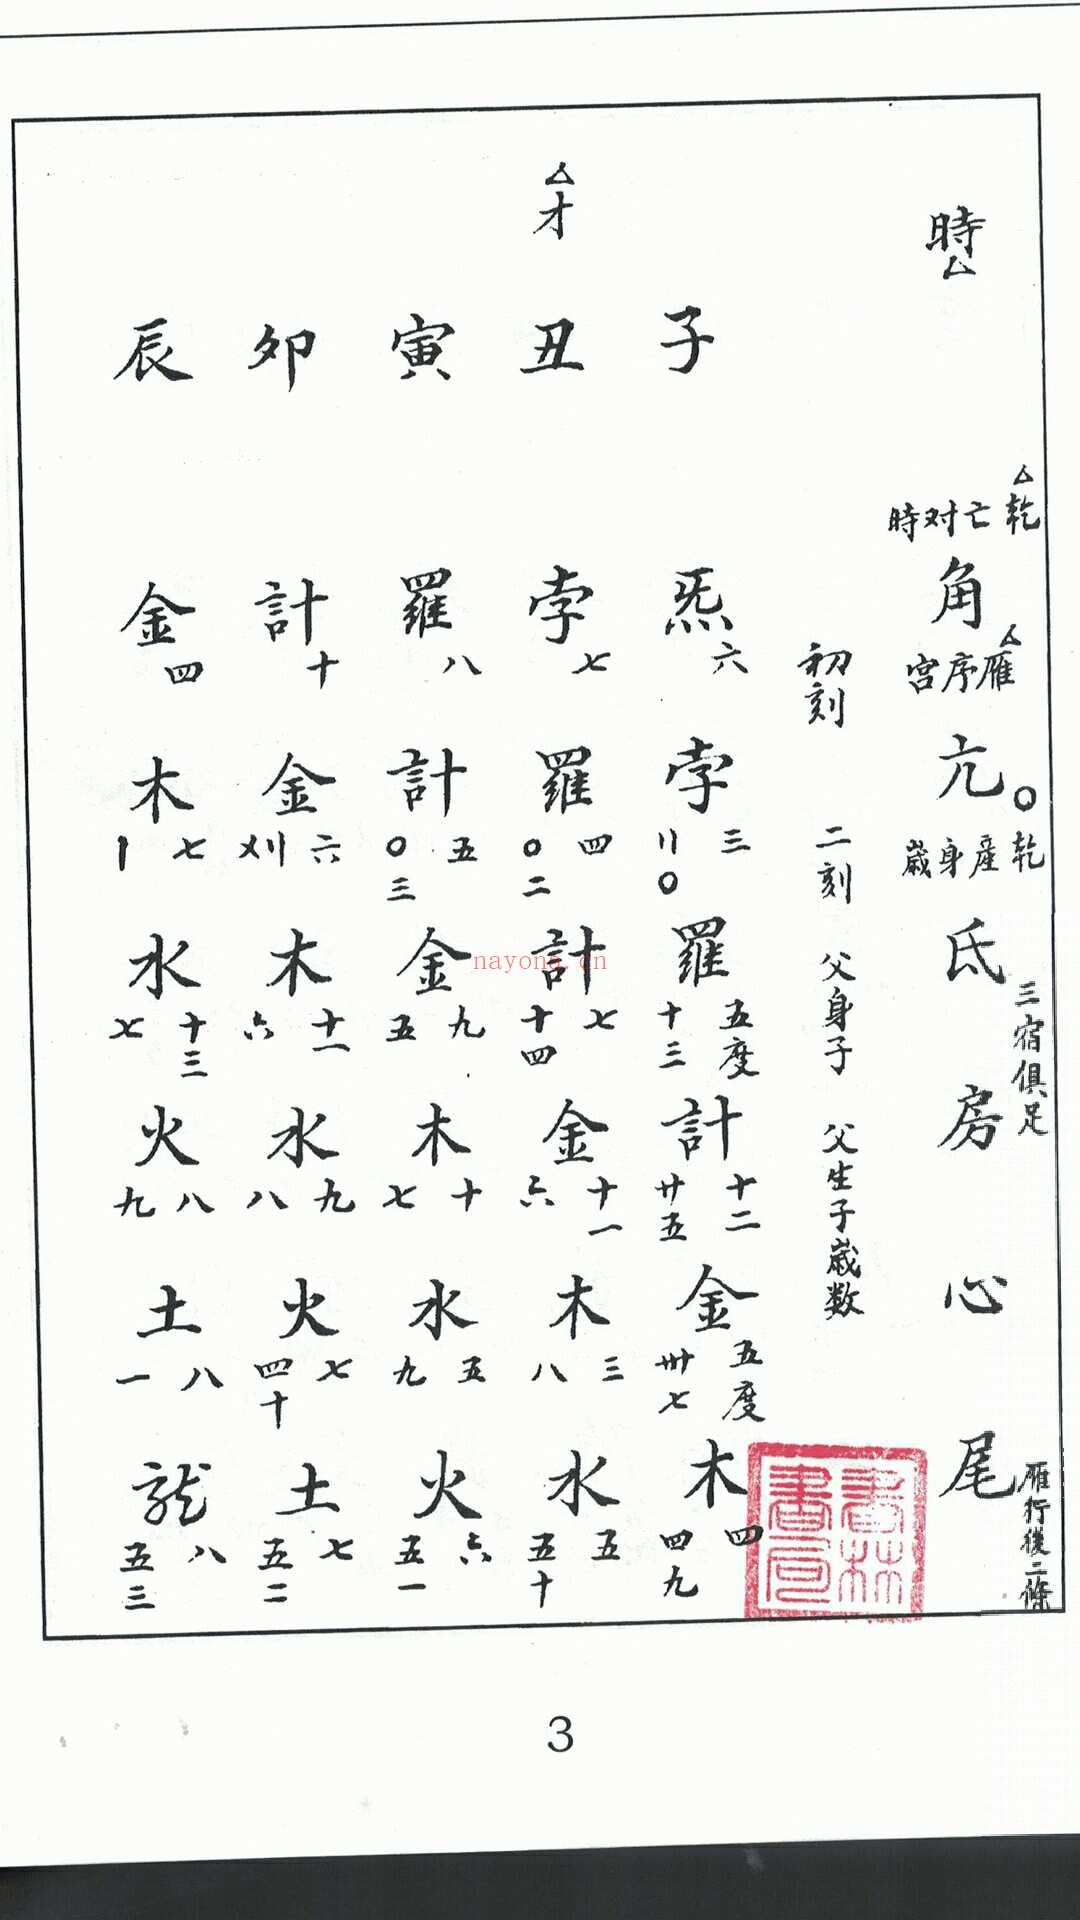 時△
△乾亡对時
角
△雁序宮
亢○
乾産身歲
氐
三宿俱足
房
心
尾
雁行後二條
初刻
二刻 父身子 父生子歲数
子
炁 六
孛 三 〢〇
羅 五度 十三
計 十二 廿五
金 五度 卅七
木 四 四九
△才
丑
孛 七
羅 四 〇二
計 七 十四
金 十一 六
木 三 八
水 五 五十
寅
羅 八
計 五 〇三
金 九 五
木 十 七
水 五 九
火 六 五一
卯
計 十
金 六 〤〢
木 十一 六
水 九 八
火 七 四十
土 七 五二
辰
金 四
木 七 〡
水 十三 七
火 八 九
土 八 一
龍 八 五三
書林書局
nayona.cn
3